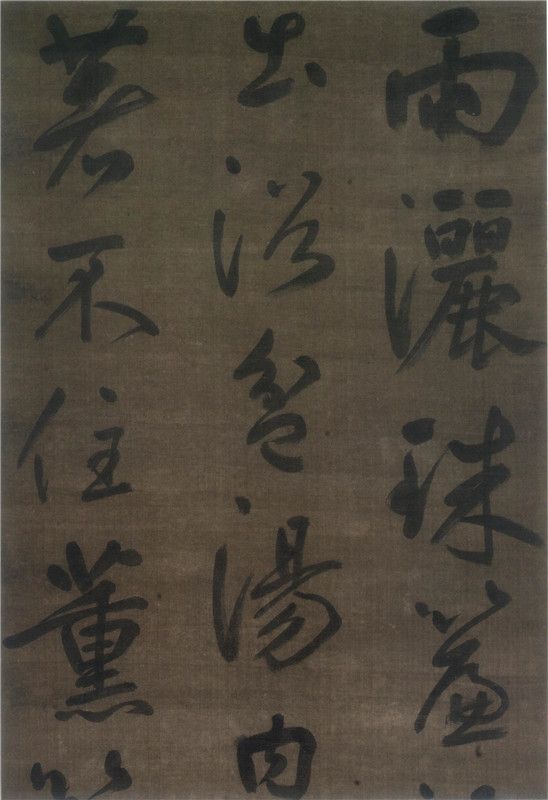 雨灑珠簾
出浴盆湯内
著不住薰